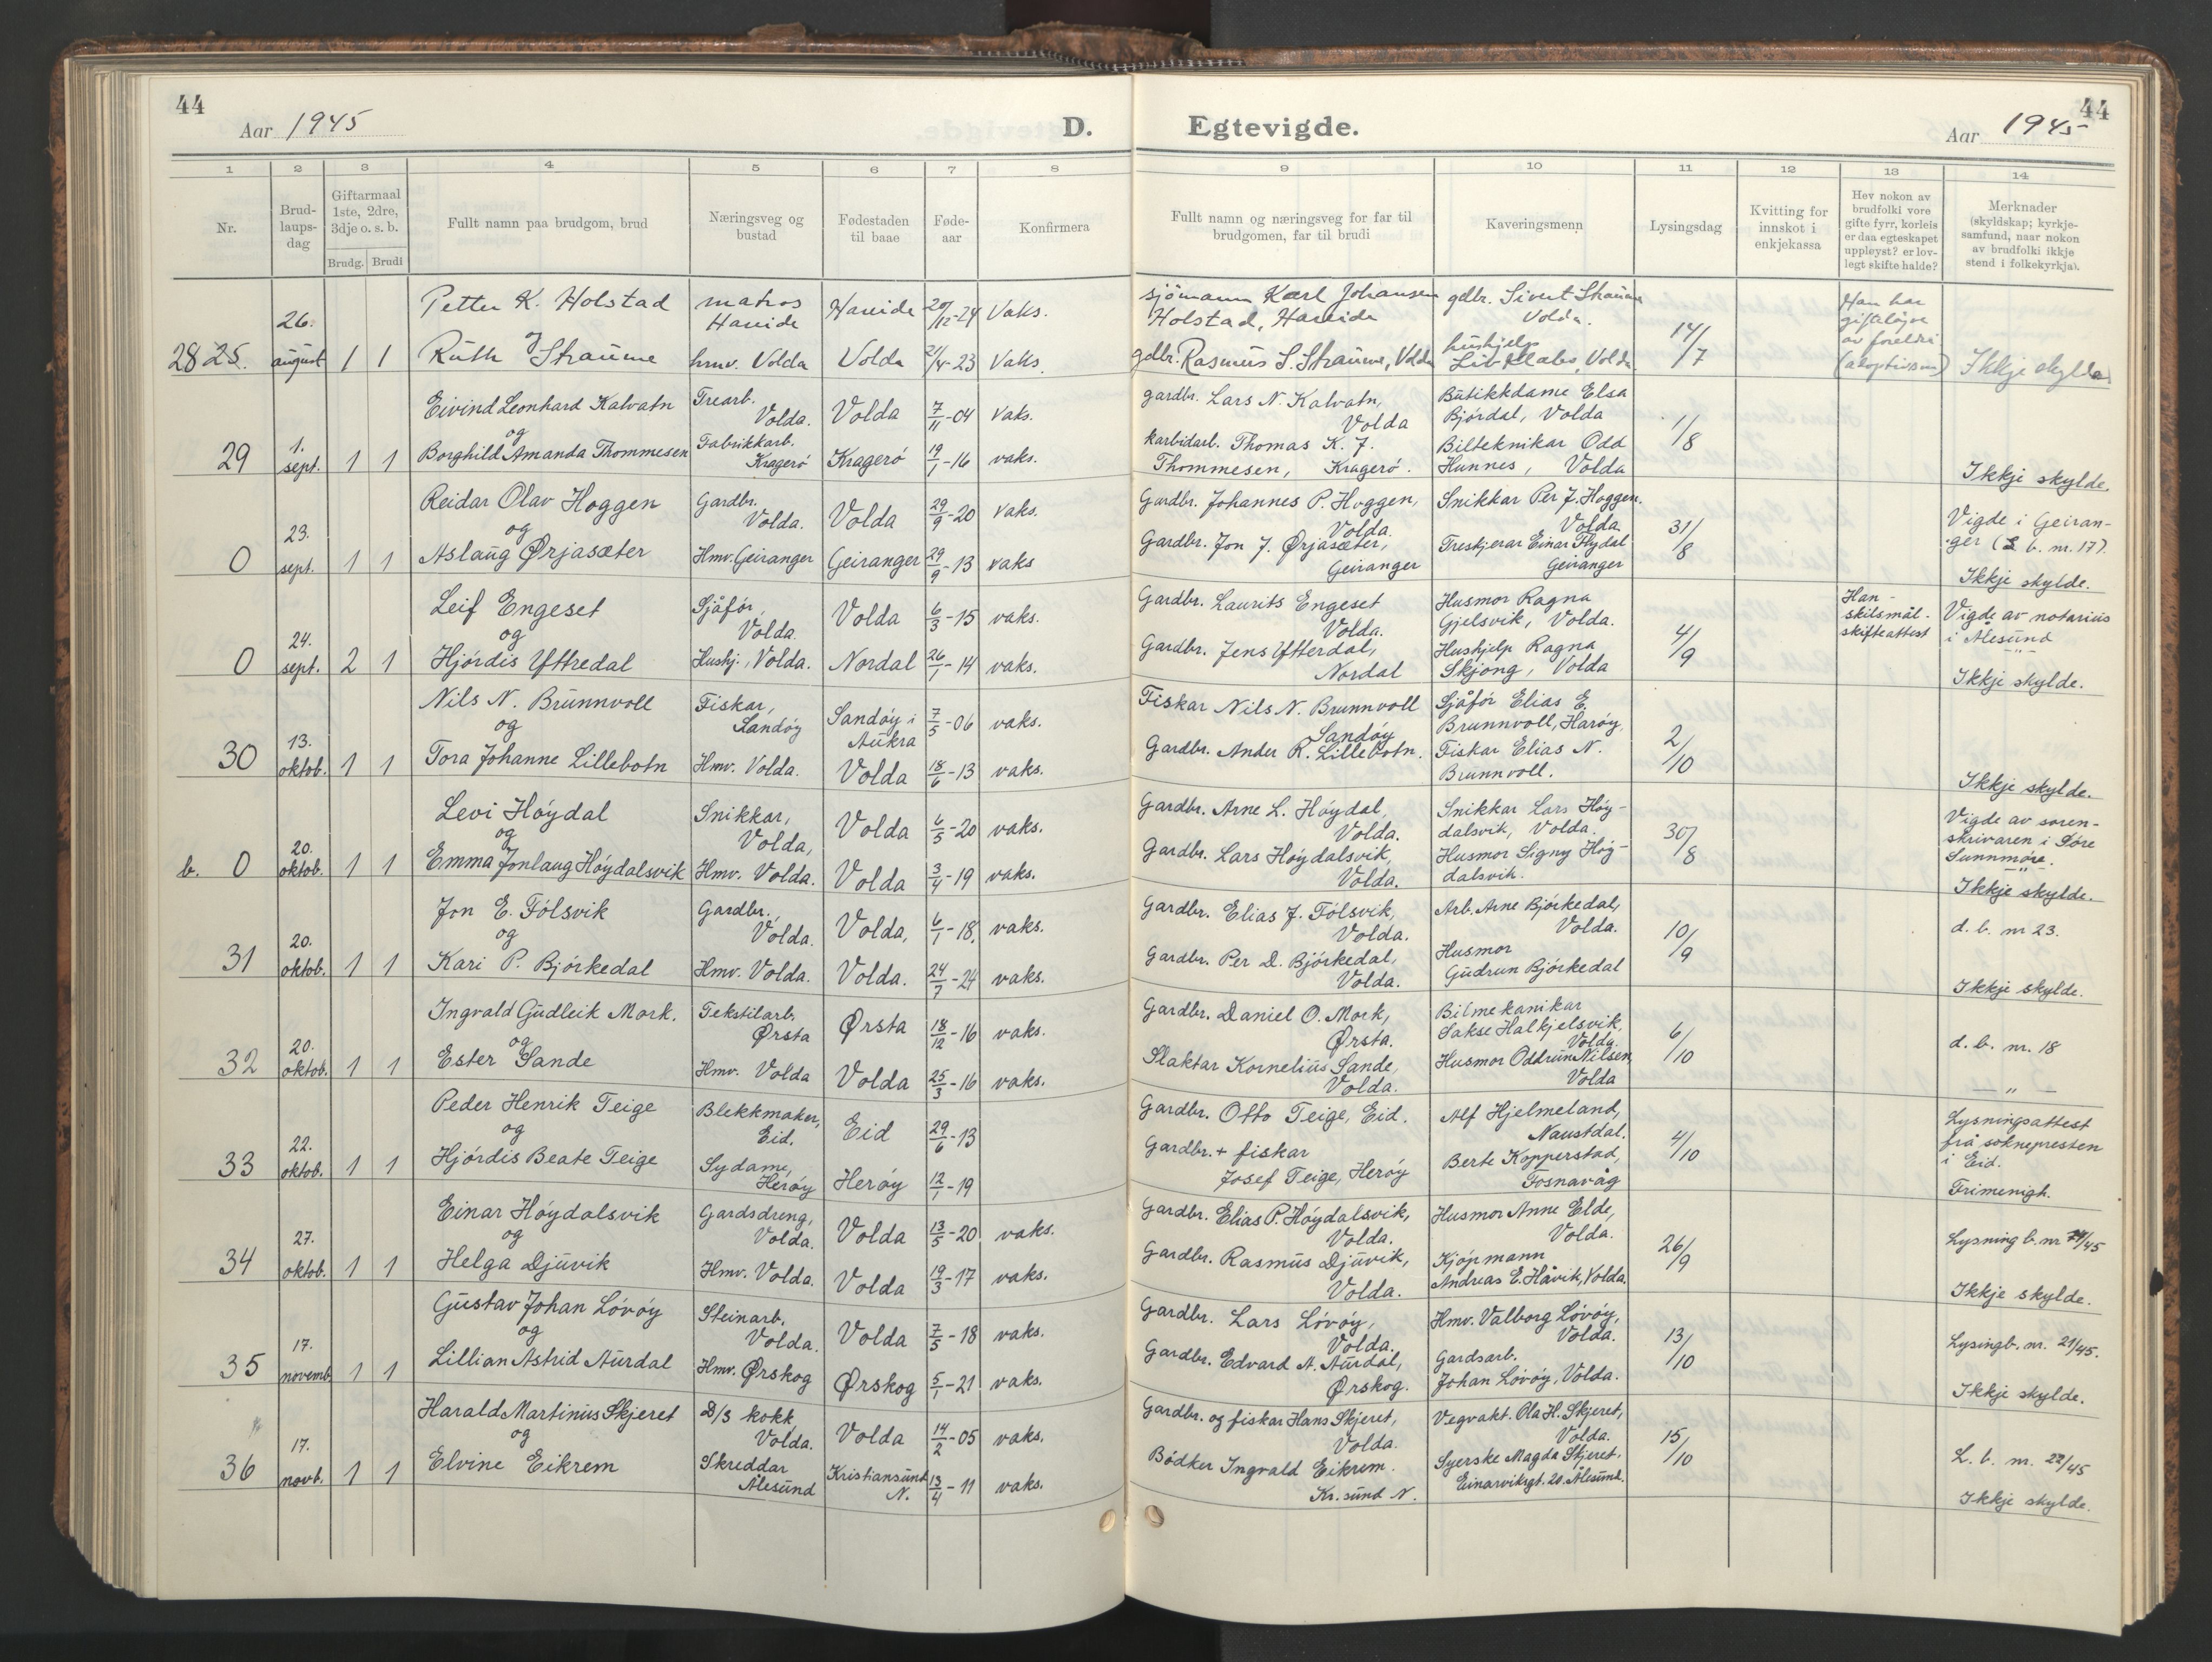 44
Aar 1945
D.
Egtevigde.
44
Aar 1945
1 2 3 4 5 6 7 8 9 10 11 12 13 14
Nr.
Brud-
laups-
dag
Giftarmaal
1ste, 2dre,
3dje o. s. b.
Brudg. Brudi
Fullt namn paa brudgom, brud
Næringsveg og
bustad
Fødestaden
til baae
Føde-
aar
Konfirmera
Fullt namn og næringsveg for far til
brudgomen, far til brudi
Kaveringsmenn
Lysingsdag
Kvitting for
innskot i
enkjekassa
Hev nokon av
brudfolki vore
gifte fyrr, korleis
er daa egteskapet
uppløyst? er lov-
legt skifte halde?
Merknader
(skyldskap; kyrkje-
samfund, naar nokon
av brudfolki ikkje
stend i folkekyrkja).
28 25. 26. august 1 1
Petter K. Holstad
og
Ruth Straume
matros
Hareide
hmv. Volda
Hareide
Volda
20/12-24
21/4-23
Vaks.
Vaks.
sjömann Karl Johansen
Holstad, Hareide
gdbr. Rasmus S. Straume, Volda
gdbr. Sivert Straume
Volda.
hushjelp
Liv Aabo, Volda
14/7
Han har
gifteløyve
av foreldri
(adoptivson)
Ikkje skylde
29 1. sept. 1 1
Eivind Leonhard Kalvatn
og
Borghild Amanda Thommesen
Trearb.
Volda.
Fabrikkarb.
Kragerö
Volda
Kragerö
7/11-04
19/1-16
vaks.
vaks.
gardbr. Lars N. Kalvatn,
Volda
karbidarb. Thomas K. J.
Thommesen, Kragerö.
Butikkdame Elsa
Bjórdal, Volda
Bilteknikar Odd
Hunnes, Volda
1/8
Ikkje skylde.
0 23. sept. 1 1
Reidar Olav Hoggen
og
Aslaug Ørjasæter
Gardbr.
Volda.
Hmv. Geiranger
Volda
Geiranger
29/9-20
29/9-13
vaks.
vaks
Gardbr. Johannes P. Hoggen,
Volda.
Gardbr. Jon J. Ørjasæter,
Geiranger
Snikkar Per J. Hoggen.
Volda.
Treskjerar Einar Flydal
Geiranger
31/8
Vigde i Geiran-
ger (L b. nr. 17).
Ikkje skylde.
0 24. sept. 2 1
Leif Engeset
og
Hjórdis Yttredal
Sjåfór,
Volda.
Hushj., Volda.
Volda
Nordal
6/3-15
26/1-14
vaks.
vaks.
Gardbr. Laurits Engeset
Volda.
Gardbr. Jens Ytterdal,
Nordal
Husmor Ragna
Gjelsvik, Volda.
Hushjelp Ragna
Skjong, Volda
4/9
Han -
skilsmål.
skifteattest
Vigde av notarius
i Ålesund
Ikkje skylde.
30 13. oktob. 1 1
Nils N. Brunnvoll
og
Tora Johanne Lillebotn
Fiskar,
Sandóy
Hmv. Volda.
Sandóy i
Aukra
Volda
7/5-06
18/6-13
vaks.
vaks.
Fiskar Nils N. Brunnvoll
Sandóy
Gardbr. Ander R. Lillebotn.
Sjåfór Elias E.
Brunnvoll, Haróy.
Fiskar Elias N.
Brunnvoll.
2/10
Ikkje skylde.
b. 0 20. oktob. 1 1
Levi Hóydal
og
Emma Jonlaug Hóydalsvik
Snikkar,
Volda,
Hmv. Volda.
Volda
Volda
6/5-20
3/4-19
vaks.
vaks.
Gardbr. Arne L. Hóydal,
Volda.
Gardbr. Lars Hóydalsvik,
Volda.
Snikkar Lars Hóy-
dalsvik, Volda.
Husmor Signy Hóy-
dalsvik.
30/8
Vigde av soren-
skrivaren i Søre
Sunnmøre.
Ikkje skylde.
31 20. oktob. 1 1
Jon E. Fólsvik
og
Kari P. Bjórkedal
Gardbr.,
Volda.
Hmv. Volda.
Volda,
Volda.
6/1-18.
24/7-24
vaks.
vaks.
Gardbr. Elias J. Fólsvik,
Volda.
Gardbr. Per D. Bjórkedal,
Volda.
Arb. Arne Bjórkedal,
Volda.
Husmor
Gudrun Bjórkedal
10/9
d. b. nr 23.
Ikkje skylde.
32 20. oktob. 1 1
Ingvald Gudleik Mork.
og
Ester Sande
Tekstilarb.
Ørsta
Hmv. Volda
Ørsta
Volda
18/12-16
25/3-16
vaks.
vaks.
Gardbr. Daniel O. Mork,
Ørsta.
Slaktar Kornelius Sande,
Volda.
Bilmekanikar
Sakse Halkjelsvik,
Volda.
Husmor Oddrun Nilsen,
Volda
6/10
d. b. nr. 18
— " —
33 22. oktob. 1 1
Peder Henrik Teige
og
Hjórdis Beate Teige
Blekkmaker,
Eid.
Sydame,
Heróy
Eid
Heróy
29/6-13
12/1-19
Gardbr. Otto Teige, Eid.
Gardbr. + fiskar
Josef Teige, Heróy
Alf Hjelmeland,
Naustdal.
Berte Kopperstad,
Fosnavåg
4/10
Lysningsattest
frå soknepresten
i Eid.
Frimenigh.
34 27. oktob. 1 1
Einar Hóydalsvik
og
Helga Djuvik
Gardsdreng,
Volda.
Hmv. Volda.
Volda
Volda
13/5-20
19/3-17
vaks.
vaks.
Gardbr. Elias P. Hóydalsvik,
Volda.
Gardbr. Rasmus Djuvik,
Volda.
Husmor Anne Elde,
Volda.
Kjópmann
Andreas E. Håvik, Volda.
26/9
Lysning b. nr /45
Ikkje skylde.
35 17. novemb. 1 1
Gustav Johan Lóvóy
og
Lillian Astrid Aurdal
Steinarb.
Volda.
Hmv. Ørskog
Volda
Ørskog
7/5-18
5/1-21
vaks.
vaks.
Gardbr. Lars Lóvóy,
Volda.
Gardbr. Edvard A. Aurdal,
Ørskog.
Hmv. Valborg Lóvóy,
Volda.
Gardsarb.
Johan Lóvóy, Volda.
13/10
Lysingb. nr. 21/45.
Ikkje skylde.
36 17. novb. 1 1
Harald Martinius Skjeret
og
Elvine Eikrem
D/S kokk
Volda.
Skreddar
Ålesund
Volda
Kristiansund
N.
14/2-05
13/4-11
vaks.
vaks.
Gardbr. og fiskar Hans Skjeret,
Volda.
Bódker Ingvald Eikrem.
Kr. sund N.
Vegvakt. Ola H. Skjeret,
Volda.
Syerske Magda Skjeret.
Einarviksgt. 20. Ålesund.
15/10
L. b. nr. 22/45
Ikkje skylde.